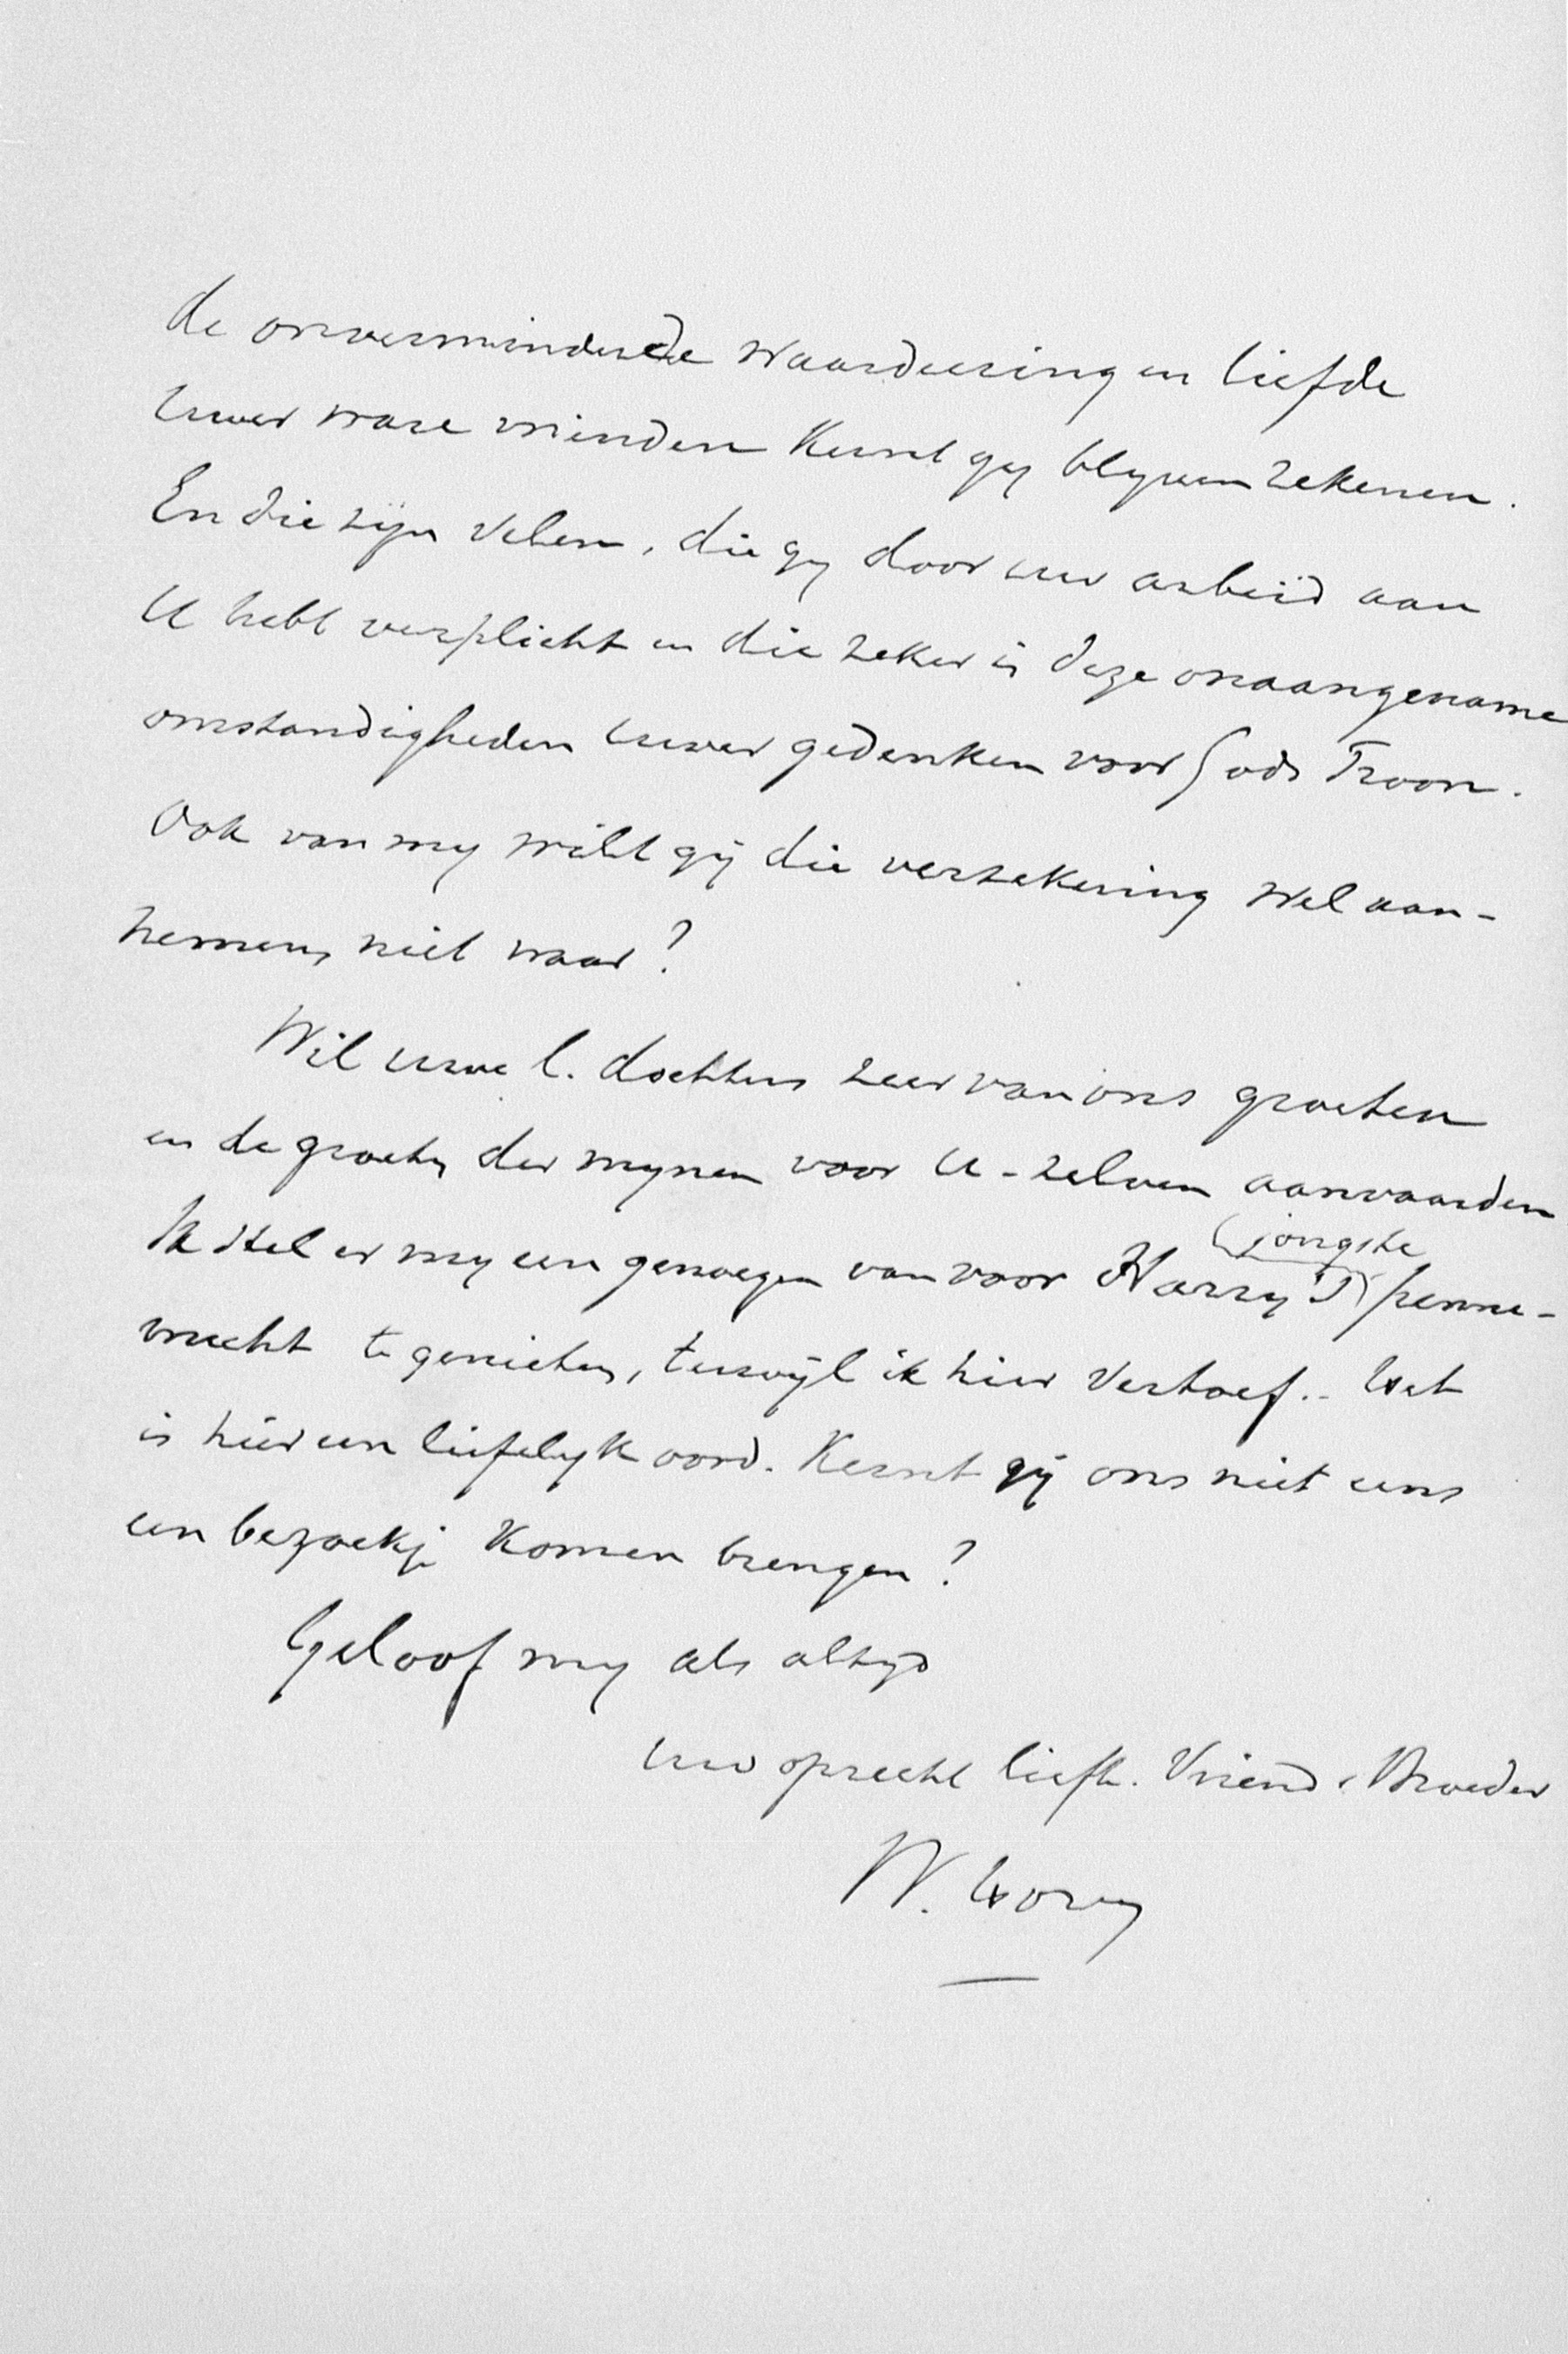 de onverminderde waardeering en liefde
uwer ware vrienden kunt gy blyven rekenen.
En die zijn velen, die gy door uw arbeid aan
U hebt verplicht en die zeker in deze onaangename
omstandigheden uwer gedenken voor Gods Troon.
Ook van my wilt gij die verzekering wel aan-
nemen, niet waar?
Wil uwe l. dochters zeer van ons groeten
en de groeten der mynen voor U-zelven aanvaarden
Ik stel er my een genoegen van voor Harry's jongste penne-
vrucht te genieten, terwijl ik hier vertoef. Het
is hier een liefelyk oord. Kunt gij ons niet eens
een bezoekje komen brengen?
Geloof my als altyd
uw oprecht liefh. Vriend & Broeder
W. Hovy